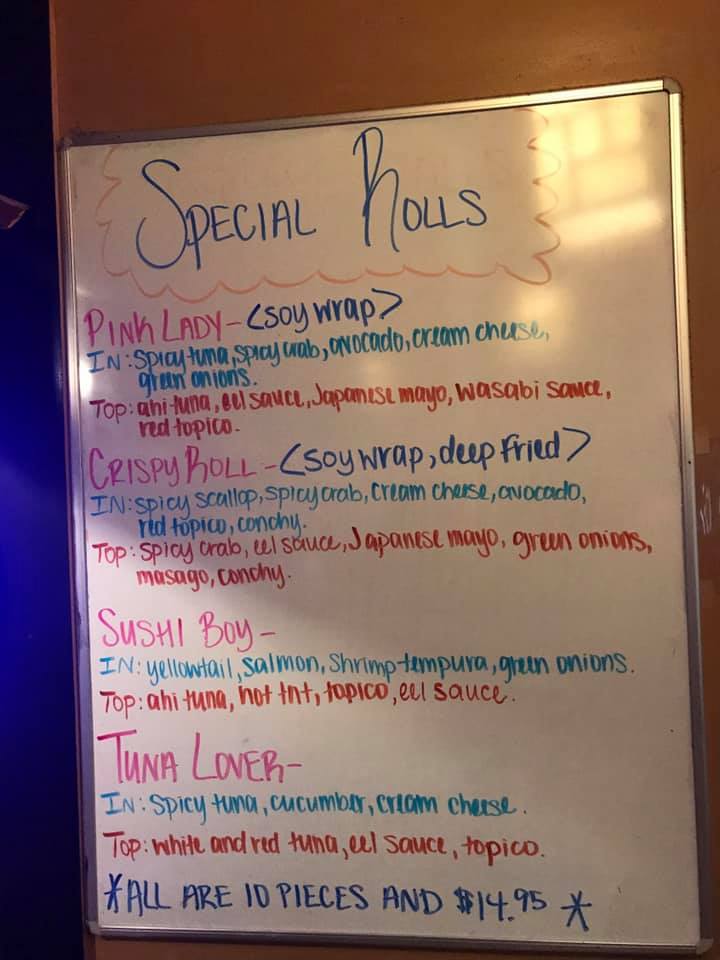 SPECIAL ROLLS
PINK LADY - <soy wrap>
IN: spicy tuna, spicy crab, avocado, cream cheese,
green onions.
TOP: ahi tuna, eel sauce, Japanese mayo, wasabi sauce,
red topico.
CRISPY ROLL - <soy wrap, deep fried>
IN: spicy scallop, spicy crab, cream cheese, avocado,
red topico, conchy.
TOP: spicy crab, eel sauce, Japanese mayo, green onions,
masago, conchy.
SUSHI BOY -
IN: yellowtail, salmon, shrimp tempura, green onions.
TOP: ahi tuna, hot tnt, topico, eel sauce.
TUNA LOVER -
IN: spicy tuna, cucumber, cream cheese.
TOP: white and red tuna, eel sauce, topico.
*ALL ARE 10 PIECES AND $14.95 *